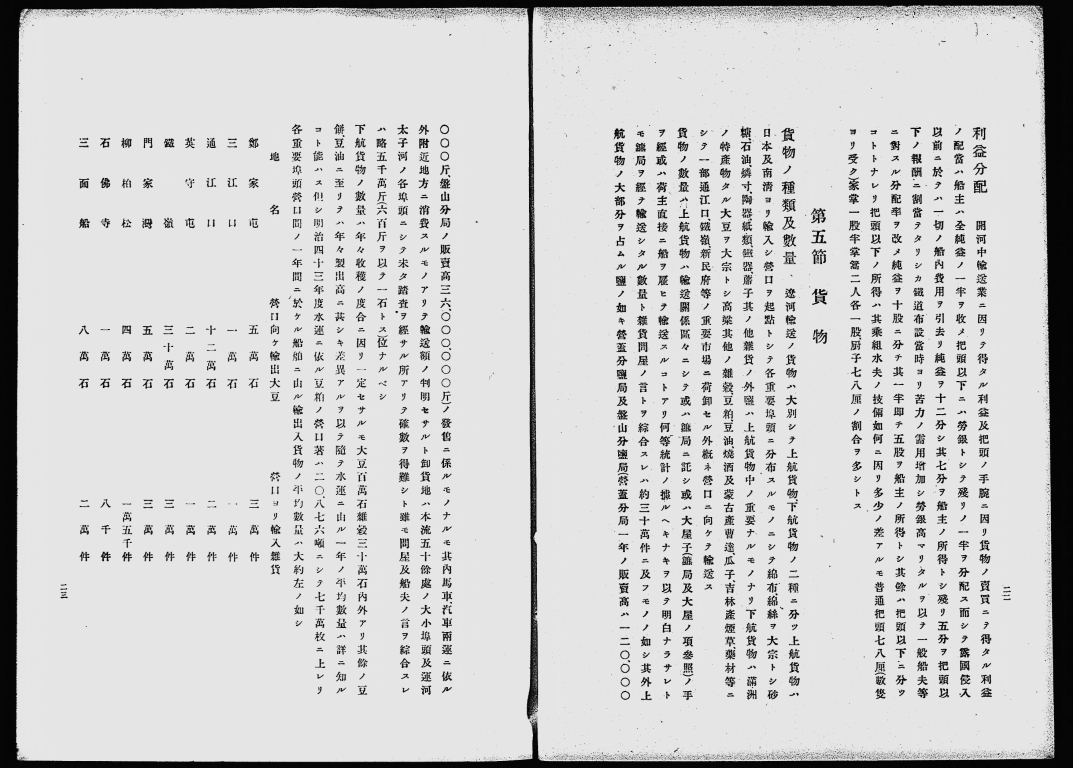 二二
利益分配　開河中輸送業ニ因リテ得タル利益及把頭ノ手腕ニ因リ貨物ノ賣買ニテ得タル利益
ノ配當ハ船主ハ全純益ノ一半ヲ收メ把頭以下ニハ勞銀トシテ殘リノ一半ヲ分配ス而シテ露國侵入
以前ニ於テハ一切ノ船內費用ヲ引去リ純益ヲ十二分シ其七分ヲ船主ノ所得トシ殘リ五分ヲ把頭以
下ノ報酬ニ割當テタリシカ鐵道布設當時ヨリ苦力ノ需用增加シ勞銀高マリタルヲ以テ一般船夫等
ニ對スル分配率ヲ改メ純益ヲ十股ニ分チ其一半卽チ五股ヲ船主ノ所得トシ其餘ハ把頭以下ニ分ツ
コトトナレリ把頭以下ノ所得ハ其乘組水夫ノ技倆如何ニ因リ多少ノ差アルモ普通把頭七八厘(數隻
ヨリ受ク)家掌一股半掌當二人各一股厨子七八厘ノ割合ヲ多シトス
第五節　貨物
貨物ノ種類及數量、遼河輸送ノ貨物ハ大別シテ上航貨物、下航貨物ノ二種ニ分ツ上航貨物ハ
日本及南淸ヨリ輸入シ營口ヲ起點トシテ各重要埠頭ニ分布スルモノニシテ綿布綿絲ヲ大宗トシ砂
糖、石油、燐寸、陶器、紙類、磁器、蓆子其ノ他雜貨ノ外鹽ハ上航貨物中ノ重要ナルモノナリ下航貨物ハ滿洲
ノ特產物タル大豆ヲ大宗トシ高粱其他ノ雜穀、豆粕豆油燒酒及蒙古產曹達瓜子、吉林產煙草、藥材等ニ
シテ一部通江口、鐵嶺、新民府等ノ重要市場ニ荷卸セル外槪ネ營口ニ向ケテ輸送ス
貨物ノ數量ハ上航貨物ハ輸送關係區々ニシテ或ハ鏢局ニ託シ或ハ大屋子(鏢局及大屋ノ項參照)ノ手
ヲ經或ハ荷主直接ニ船ヲ雇ヒテ輸送スルコトアリ何等統計ノ據ルヘキナキヲ以テ明白ナラサレト
モ鏢局ヲ經テ輸送シタル數量ト雜貨問屋ノ言トヲ綜合スレハ約三十萬件ニ及フモノノ如シ其外上
航貨物ノ大部分ヲ占ムル鹽ノ如キ營蓋分鹽局及盤山分鹽局(營蓋分局一年ノ販賣高ハ一二〇、〇〇〇
〇〇〇斤、盤山分局ノ販賣高三六、〇〇〇、〇〇〇斤)ノ發售ニ係ルモノナルモ其內馬車汽車兩運ニ依ル
外附近地方ニ消費スルモノアリテ輸送額ノ判明セサルト卸貨地ハ本流五十餘處ノ大小埠頭及運河
太子河ノ各埠頭ニシテ未タ踏査ヲ經サル所アリテ確數ヲ得難シト雖モ問屋及船夫ノ言ヲ綜合スレ
ハ略五千萬斤(六百斤ヲ以テ一石トス)位ナルベシ
下航貨物ノ數量ハ年々收穫ノ度合ニ因リ一定セサルモ大豆百萬石雜穀三十萬石內外アリ其餘ノ豆
餅、豆油ニ至リテハ年々製出高ニ甚シキ差異アルヲ以テ隨テ水運ニ由ル一年ノ平均數量ハ詳ニ知ル
コト能ハス但シ明治四十三年度水運ニ依ル豆粕ノ營口著ハ二〇、八七六噸ニシテ七千萬枚ニ上レリ
各重要埠頭營口間ノ一年間ニ於ケル船舶ニ由ル輸出入貨物ノ平均數量ハ大約左ノ如シ
地名　營口向ケ輸出大豆　營口ヨリ輸入雜貨
鄭家屯　五萬石　三萬件
三江口　一萬石　一萬件
通江口　十二萬石　二萬件
英守屯　二萬石　一萬件
鐵嶺　三十萬石　三萬件
門家灣　五萬石　三萬件
柳柏松　四萬石　一萬五千件
石佛寺　一萬石　八千件
三面船　八萬石　二萬件
二三